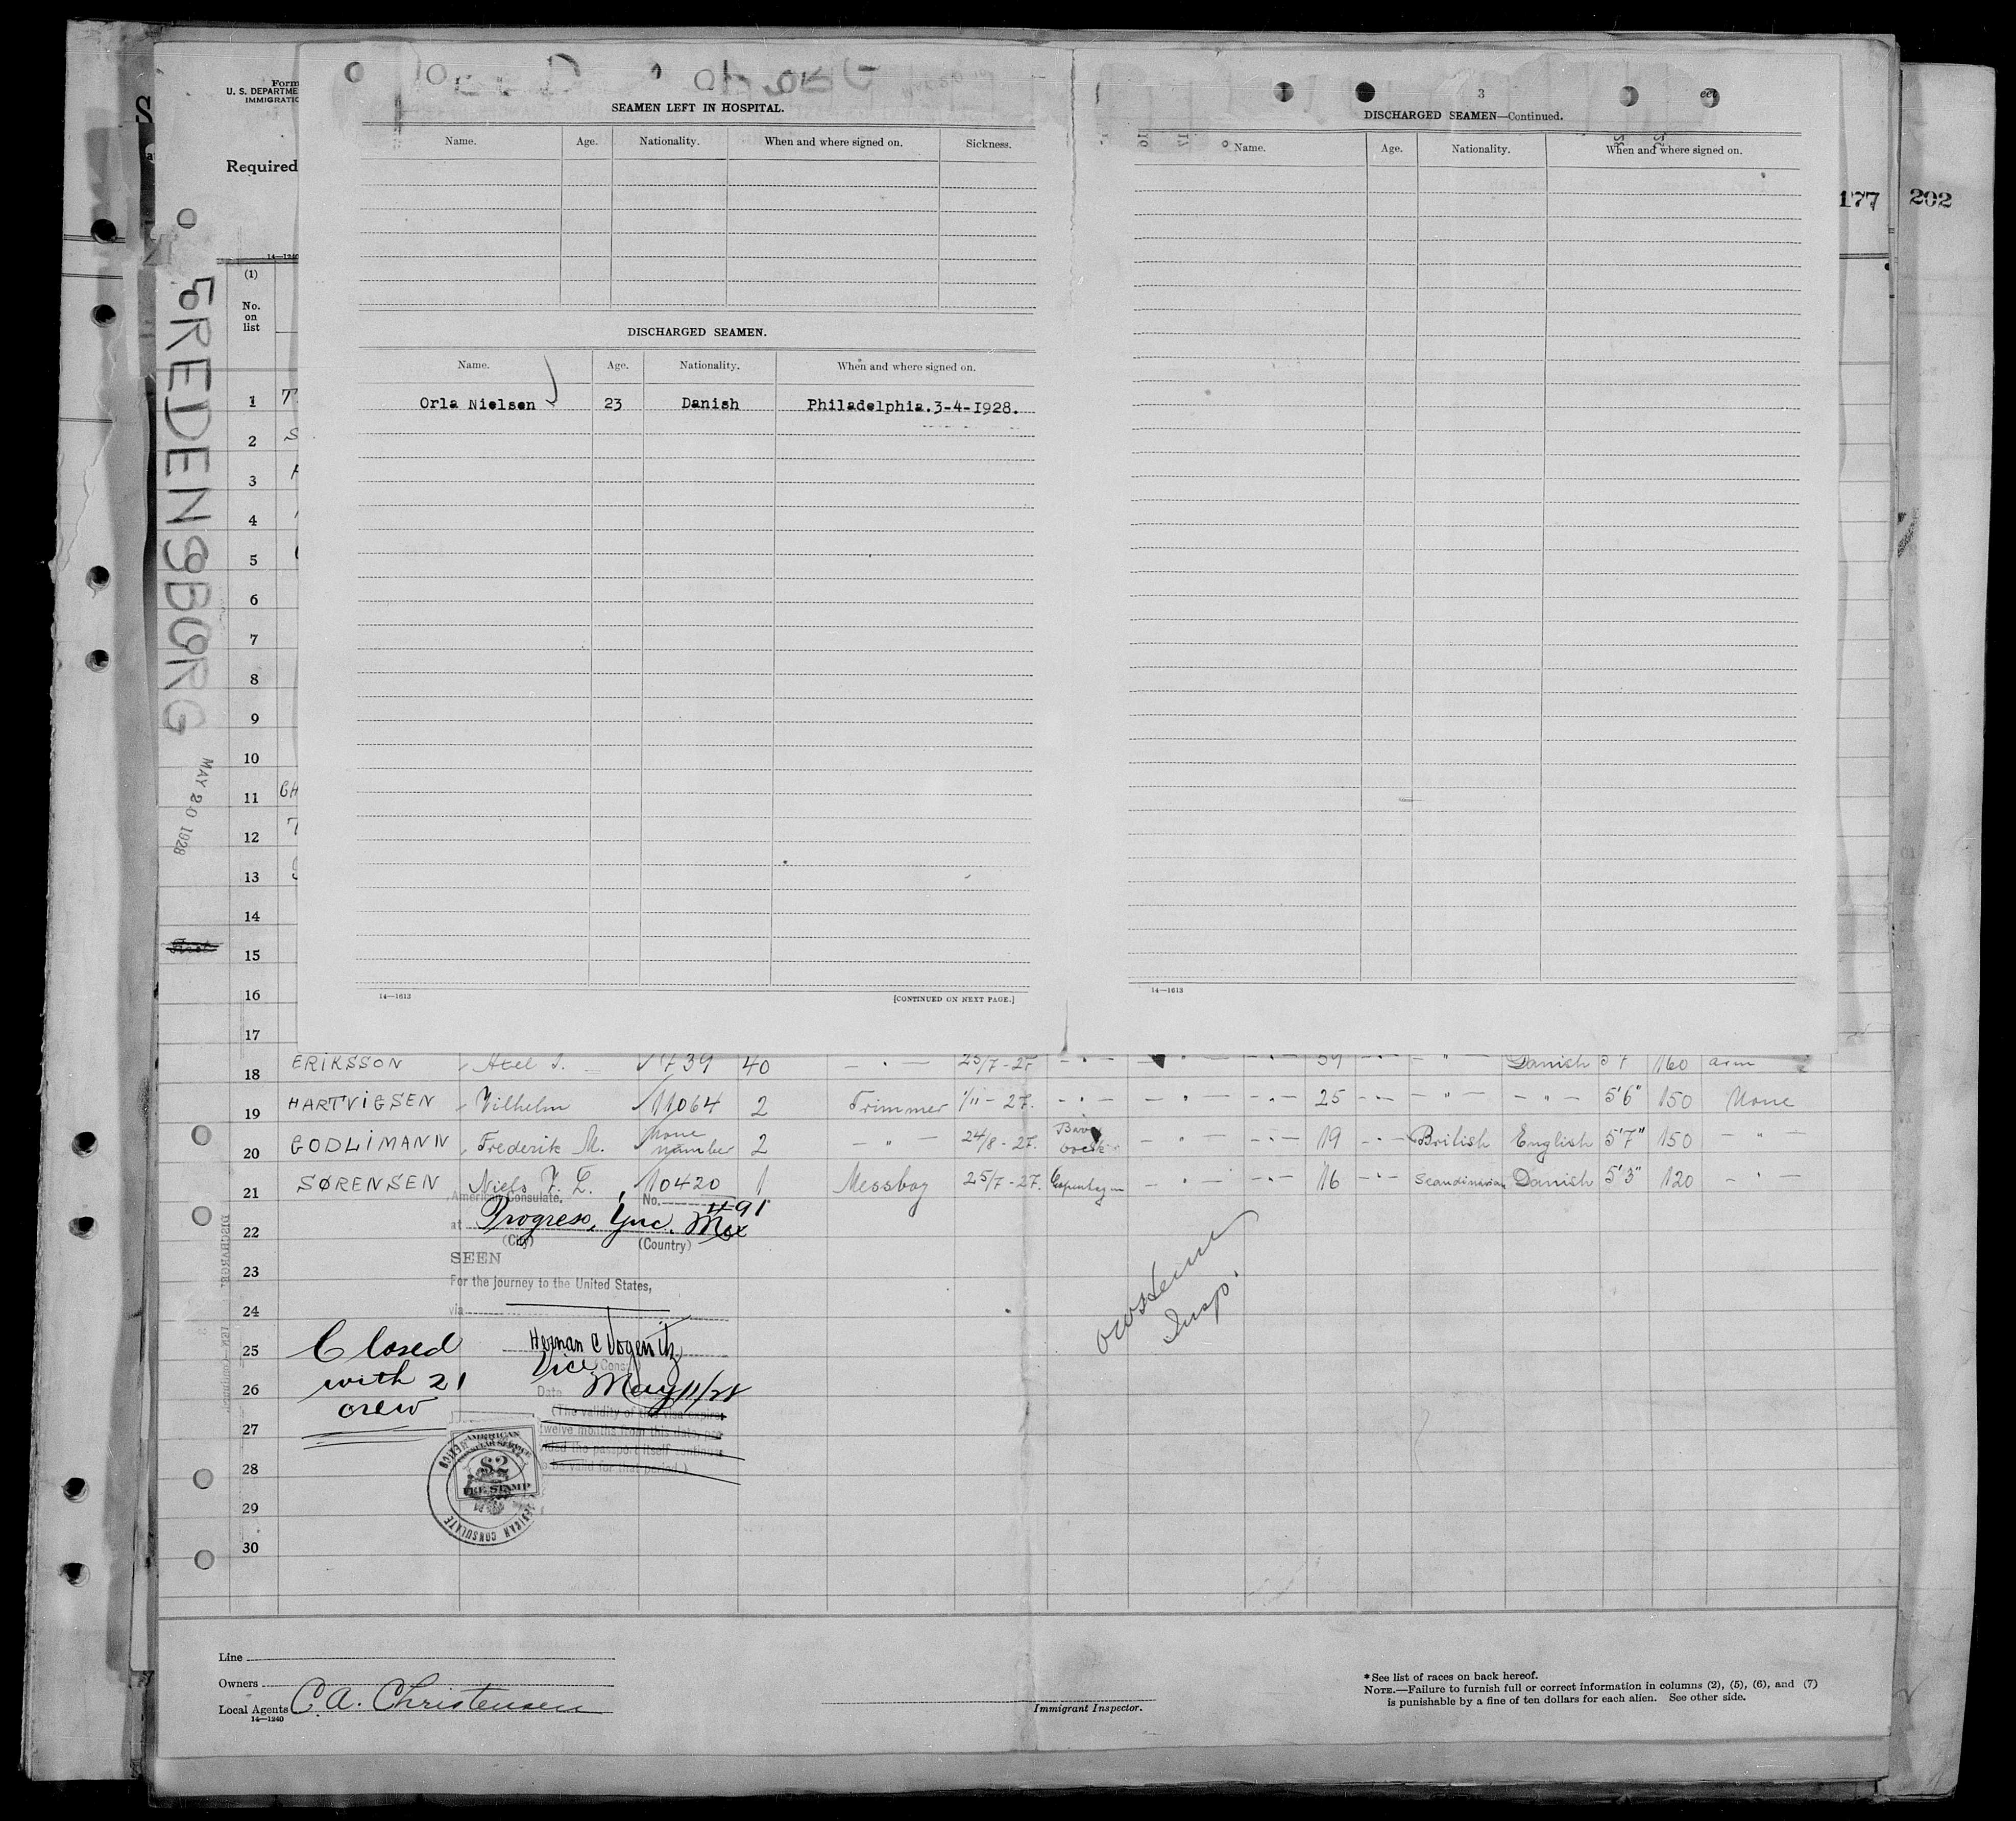 Form
U. S. DEPARTME
IMMIGRATIO
Required
14—1240
(1)
No.
on
list
FREDENSBORG
MAY 20 1928
SEAMEN LEFT IN HOSPITAL.
Name. Age. Nationality. When and where signed on. Sickness.
DISCHARGED SEAMEN.
Name. Age. Nationality. When and where signed on.
Orla Nielsen 23 Danish Philadelphia.3-4-1928.
14—1613 [CONTINUED ON NEXT PAGE.]
3
DISCHARGED SEAMEN—Continued.
Name. Age. Nationality. When and where signed on.
14—1613
177 202
1
2
3
4
5
6
7
8
9
10
11
12
13
14
15
16
17
18 ERIKSSON Axel 439 40 - " - 25/7-27 Danish 160 arm
19 HARTVIGSEN Vilhelm 11064 2 Trimmer 1/11-27. - " - - " - - " - 25 - " - - " - - " - 5'6" 150 None
20 GODLIMANN Frederik M. None number 2 - " - 24/8-27. - " - - " - 19 - " - British English 5'7" 150 - " -
21 SØRENSEN Niels 10420 1 Messboy 25/7-27. Copenhagen - " - - " - 16 - " - Scandinavian Danish 5'3" 120 - " -
22
23
24
25
26
27
28
29
30
American Consulate, No. 491
at Progreso, Yuc. Mex
(City) (Country)
SEEN
For the journey to the United States,
via
Vice Consul
Date May 11/28
(The validity of this visa expires
twelve months from this date, pro-
vided the passport itself continues
to be valid for that period.)
Closed
with 21
crew
AMERICAN
CONSULAR SERVICE
$2
FEE STAMP
AMERICAN CONSULATE
Insp.
Line
Owners
Local Agents C.A. Christensen
14—1240
Immigrant Inspector.
* See list of races on back hereof.
NOTE.—Failure to furnish full or correct information in columns (2), (5), (6), and (7)
is punishable by a fine of ten dollars for each alien. See other side.